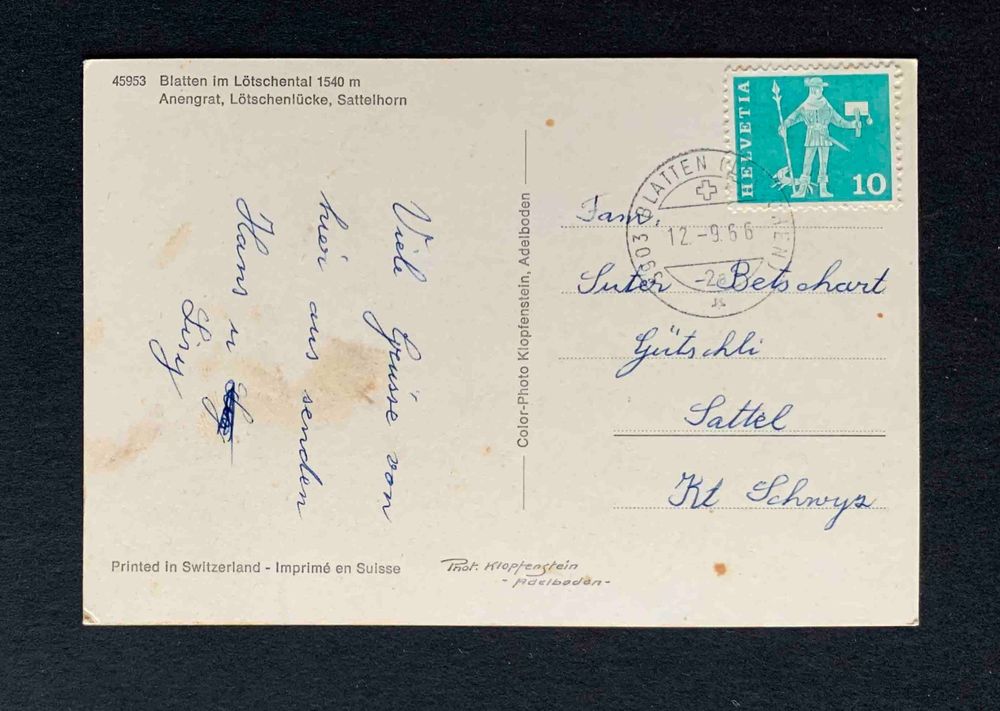 45953 Blatten im Lötschental 1540 m
Anengrat, Lötschenlücke, Sattelhorn
HELVETIA
10
3903 BLATTEN
12.-9.66
Viele Grüsse von
hier aus senden
Hans u
Lisy
Color-Photo Klopfenstein, Adelboden
Fam.
Suter - Betschart
Gütschli
Sattel
Kt Schwyz
Printed in Switzerland - Imprimé en Suisse
Phot. Klopfenstein
- Adelboden -